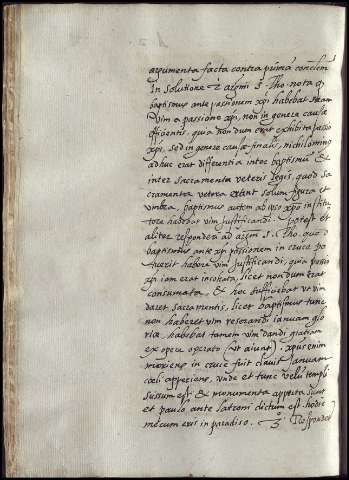 argumenta facta contra primã conclem
In solutione 2 argmi S. Tho. nota q
baptismus ante passionem xpi habebat suam
vim a passione xpi, non in genere causæ
efficientis, quia non dum erat exhibita passio
xpi, sed in genere causæ finalis, nihilominus
adhuc erat differentia inter baptismũ Et
inter sacramenta veteris legis, quod sa
cramenta vetera erant solum figura et
umbra, baptismus autem ab ipso xpo institu
tore habebat vim justificandi. potest et
aliter responderi ad argm S. Tho. quod
baptismus ante xpi passionem in cruce po
tuerit habere vim justificandi, quia passio
xpi iam erat incepta, licet non dum erat
consumata, & hoc sufficiebat ut vim
daret, sacramentis, licet baptismus tunc
non haberet vim reserandi ianuam glo
riæ, habebat tamen vim dandi gratiam
ex opere operato (ut aiunt), xpus enim
moriens in cruce fuit clavis ianuam
cœli apperiens, unde et tunc velũ templi
scissum est, & monumenta apperta sunt
et paulo ante latroni dictum est hodie
mecum eris in paradiso. 3º Respondet